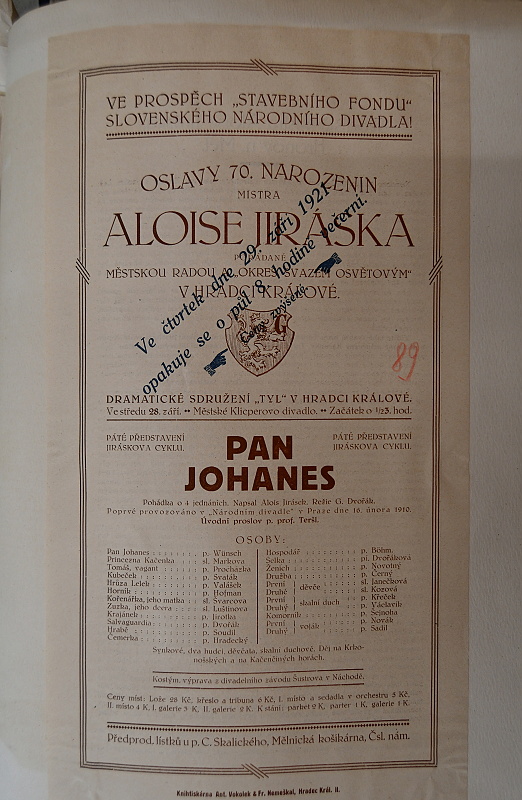 VE PROSPĚCH „STAVEBNÍHO FONDU“
SLOVENSKÉHO NÁRODNÍHO DIVADLA!
OSLAVY 70. NAROZENIN
MISTRA
ALOISE JIRÁSKA
POŘÁDANÉ
MĚSTSKOU RADOU A „OKRES. SVAZEM OSVĚTOVÝM“
V HRADCI KRÁLOVÉ.
Ve čtvrtek dne 29. září 1921
opakuje se o půl 8 hodině večerní.
Ceny zvýšené
G
89
DRAMATICKÉ SDRUŽENÍ „TYL“ V HRADCI KRÁLOVÉ.
Ve středu 28. září. •• Městské Klicperovo divadlo. •• Začátek o 1/23. hod.
PÁTÉ PŘEDSTAVENÍ
JIRÁSKOVA CYKLU.
PAN
JOHANES
PÁTÉ PŘEDSTAVENÍ
JIRÁSKOVA CYKLU.
Pohádka o 4 jednáních. Napsal Alois Jirásek. Režie G. Dvořák.
Poprvé provozováno v „Národním divadle“ v Praze dne 16. února 1910.
Úvodní proslov p. prof. Teršl.
OSOBY:
Pan Johanes : : : : : : : p. Wünsch
Princezna Kačenka : : : sl. Markova
Tomáš, vagant : : : : : p. Procházka
Kubeček : : : : : : : : p. Svalák
Hrůza Lelek : : : : : : p. Valášek
Horník : : : : : : : : p. Hofman
Kořenářka, jeho matka : sl. Švarcova
Zuzka, jeho dcera : : : sl. Luštinova
Krajánek : : : : : : : p. Jirotka
Salvaguardia : : : : : p. Dvořák
Hrabě : : : : : : : : p. Soudil
Čemerka : : : : : : : p. Hradecký
Hospodář : : : : : : p. Böhm
Selka : : : : : : : : pí. Dvořáková
Ženich : : : : : : : p. Novotný
Družba : : : : : : : p. Černý
První děvče : : : : sl. Janečková
Druhé : : : : sl. Kozová
První skalní duch : : p. Křeček
Druhý : : p. Václavík
Komorník : : : : : : p. Šejnoha
První voják : : : : p. Novák
Druhý : : : : p. Sádil
Synkové, dva hudci, děvčata, skalní duchové. Děj na Krko-
nošských a na Kačenčiných horách.
Kostým. výprava z divadelního závodu Šustrova v Náchodě.
Ceny míst: Lože 28 Kč, křeslo a tribuna 6 Kč, I. místo a sedadla v orchestru 5 Kč,
II. místo 4 K, I. galerie 3 K, II. galerie 2 K. K stání: parket 2 K, parter 1 K, galerie 1 K.
Předprod. lístků u p. C. Skalického, Mělnická košikárna, Čsl. nám.
Knihtiskárna Ant. Vokolek & Fr. Nemeškal, Hradec Král. II.